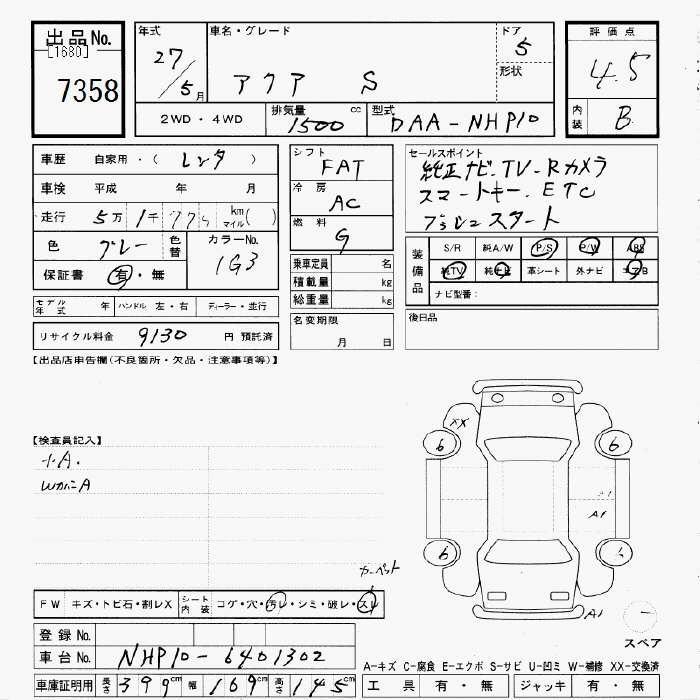 出品No.
[1680]
7358
年式
27/5月
車名・グレード
アクア S
ドア
5
形状
評価点
4.5
内装
B
2WD・4WD
排気量
1500
cc
型式
DAA-NHP10
車歴 自家用・(レンタ)
車検 平成 年 月
走行 5万1千77 km マイル( )
色 グレー
色替
カラーNo.
1G3
保証書 有・無
シフト
FAT
冷房
AC
燃料
G
乗車定員 名
積載量 kg
総重量 kg
名変期限
月 日
セールスポイント
純正ナビ.TV-Rカメラ
スマートキー.ETC
プッシュスタート
装備品
S/R 純A/W P/S P/W ABS
純TV 純ナビ 革シート 外ナビ エアB
ナビ型番:
後日品
モデル年式 年
ハンドル 左・右
ディーラー・並行
リサイクル料金 9130 円 預託済
【出品店申告欄(不良箇所・欠品・注意事項等)】
【検査員記入】
小A.
WカバーA
カーペット
XX
6
6
6
A1
A1
A1
スペア
FW キズ・トビ石・割レX
シート内装 コゲ・穴・汚レ・シミ・破レ・スレ
登録No.
車台No. NHP10-6401302
車庫証明用 長さ 399cm 幅 169cm 高さ 145cm
A-キズ C-腐食 E-エクボ S-サビ U-凹ミ W-補修 XX-交換済
工具 有・無 ジャッキ 有・無